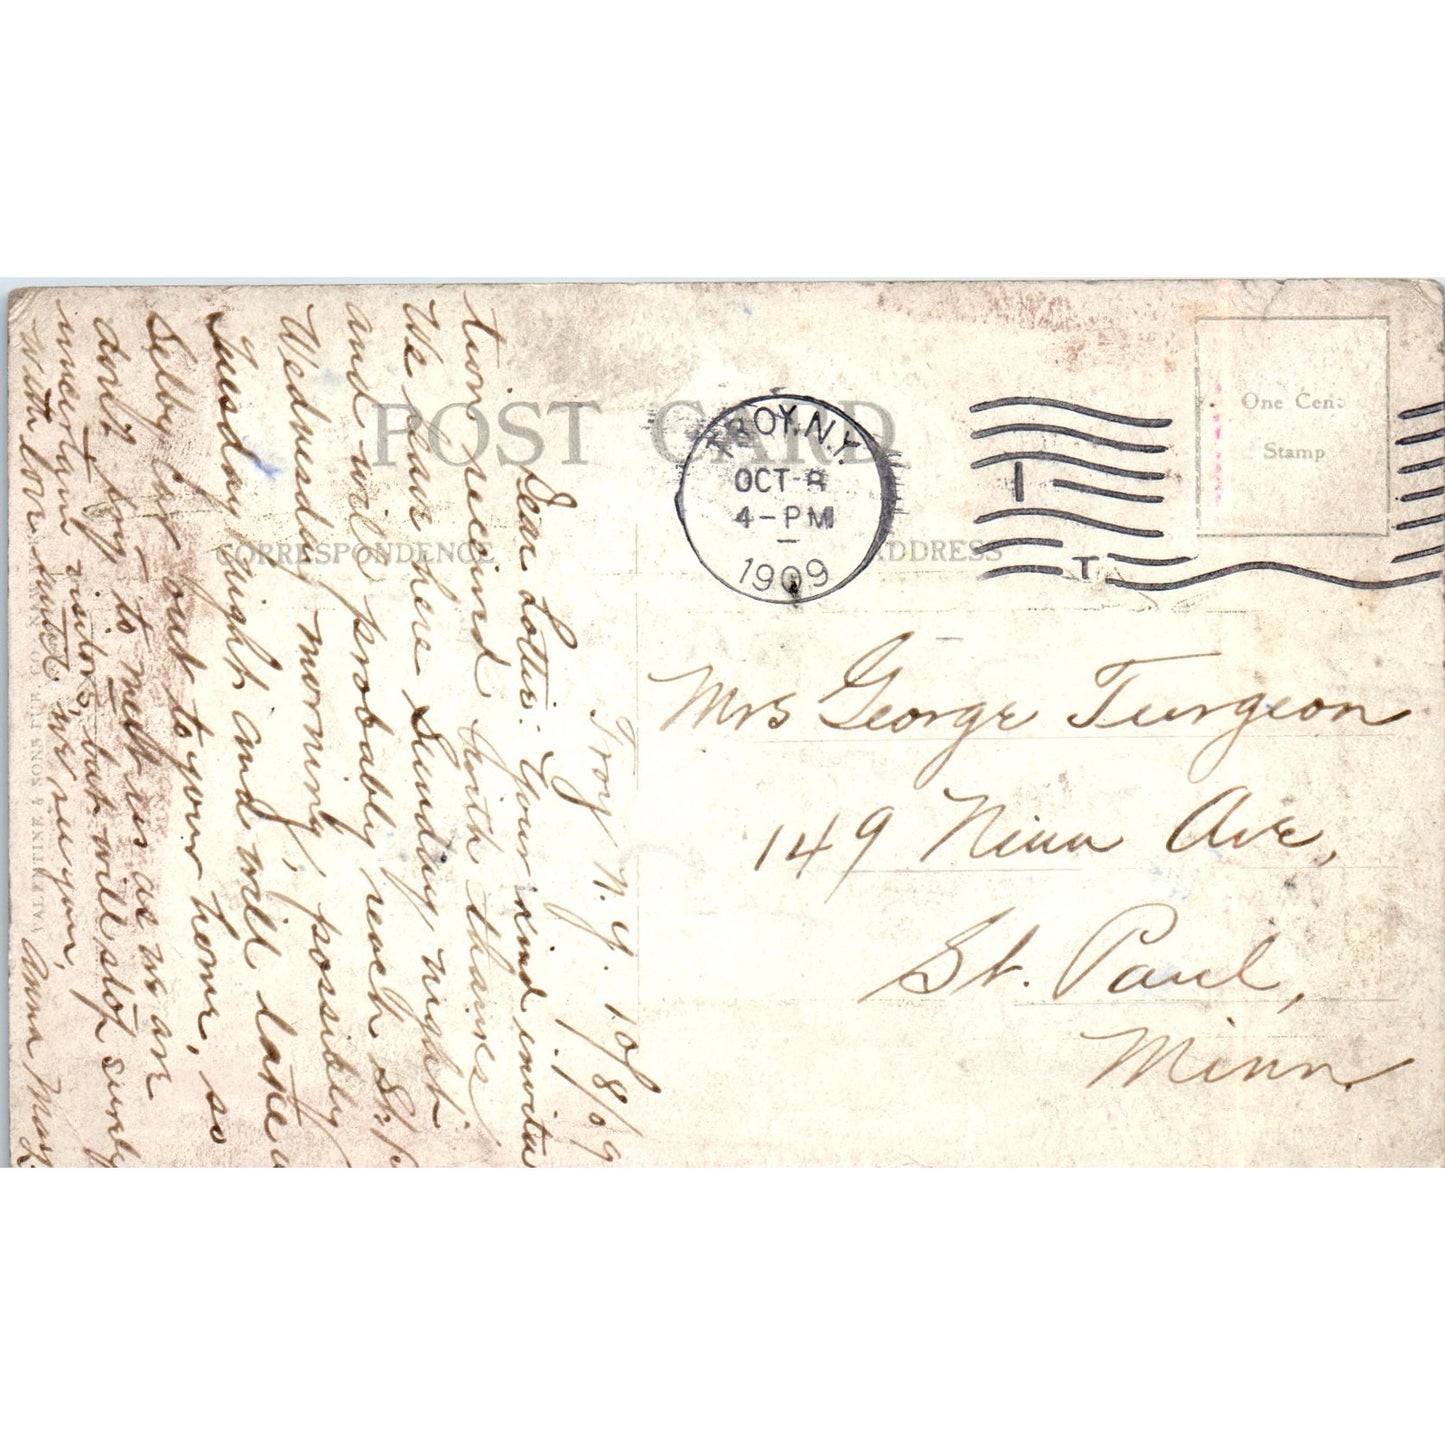 POST CARD
CORRESPONDENCE
ADDRESS
One Cent
Stamp
TROY, N.Y.
OCT 8
4-PM
1909
Troy N.Y. 10/8/09
Dear Lottie: Your kind invita
tion received with thanks.
We leave here Sunday night
and will probably reach St. P
Wednesday morning, possibly
Tuesday night, and will take
Selby Car out to your home, so
don't to meet us as we are
uncertain visitors, but will stop surely
with love until we see you,
Anna May
VALENTINE & SONS PUB. CO.
Mrs George Turgeon
149 Ninn Ave,
St. Paul,
Minn.